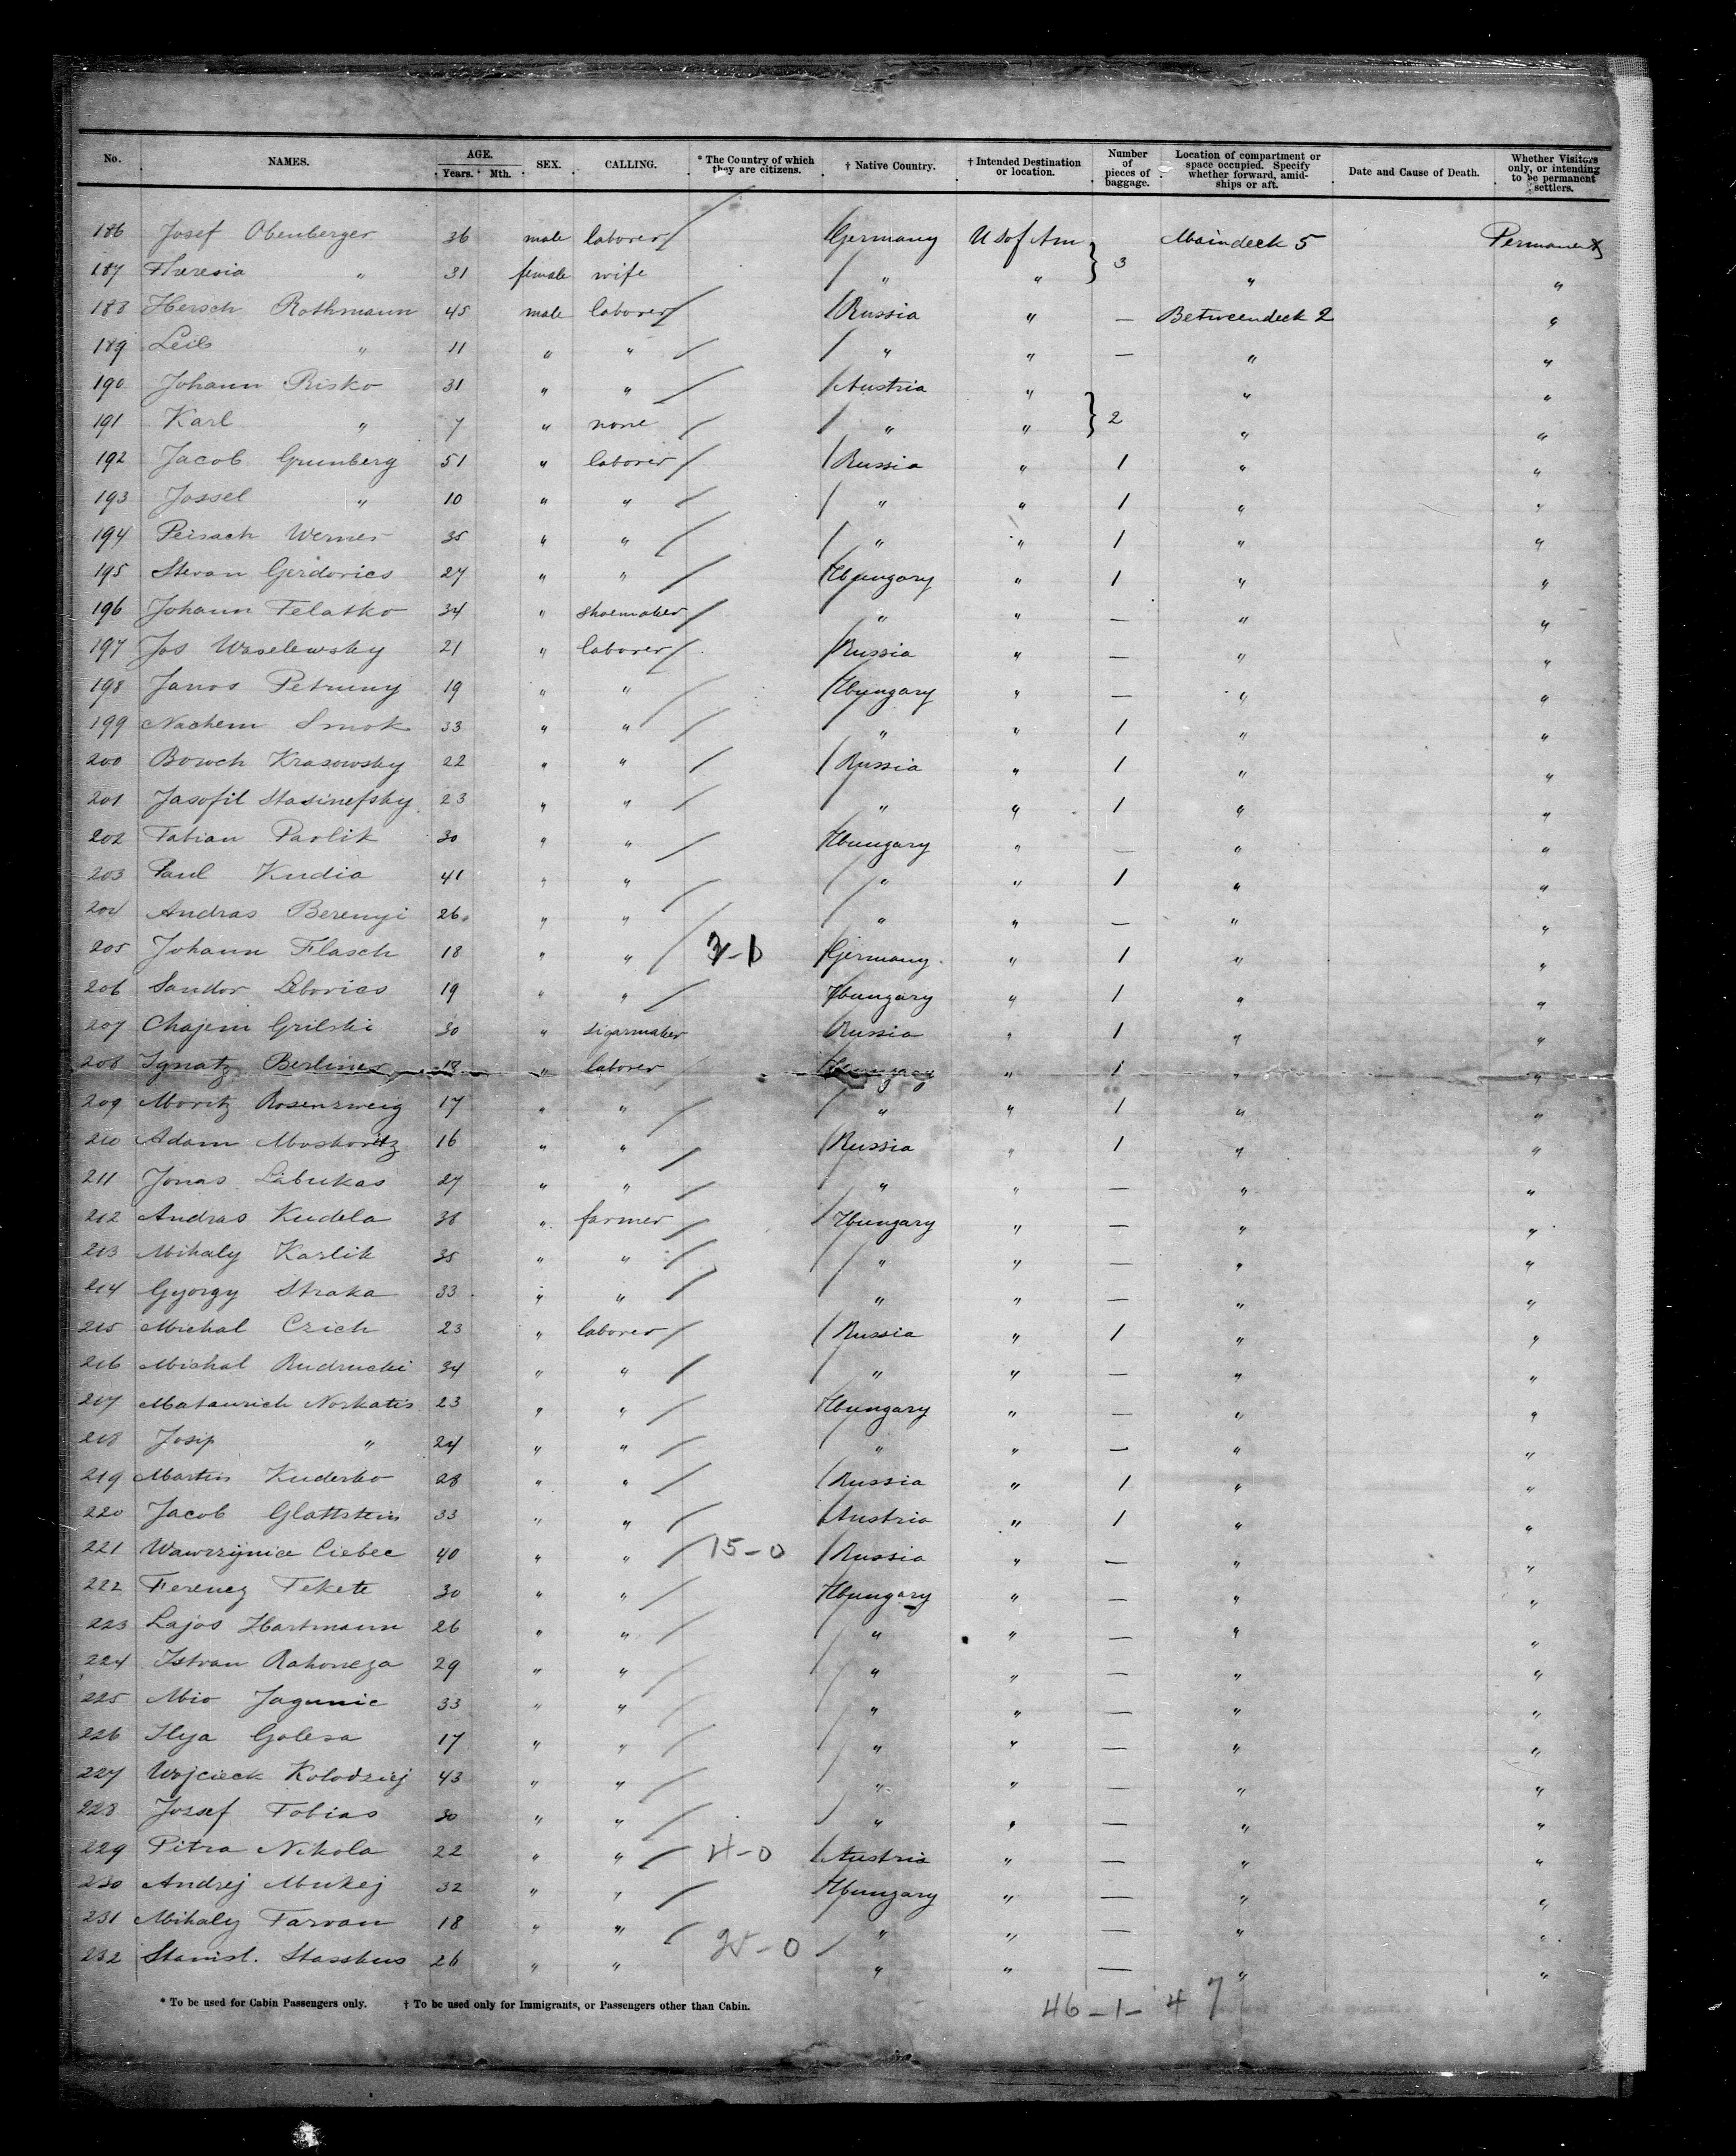 No. NAMES. AGE. Years. Mth. SEX. CALLING. * The Country of which they are citizens. † Native Country. † Intended Destination or location. Number of pieces of baggage. Location of compartment or space occupied. Specify whether forward, amidships or aft. Date and Cause of Death. Whether Visitors only, or intending to be permanent settlers.
186 Josef Obenberger 36 male laborer / Germany U S of Am } 3 Maindeck 5 Permanent
187 Theresia " 31 female wife / " " " "
188 Hersch Rothmann 45 male laborer / / Russia " — Betweendeck 2 "
189 Leib " 11 " " / / " " — " "
190 Johann Risko 31 " " / / Austria " } 2 " "
191 Karl " 7 " none / / " " " "
192 Jacob Grunberg 51 " laborer / / Russia " 1 " "
193 Jossel " 10 " " / / " " 1 " "
194 Peisach Werner 35 " " / / " " 1 " "
195 Stevan Gerdovics 27 " " / Hungary " 1 " "
196 Johann Felatko 34 " shoemaker / / " " — " "
197 Jos Waselewsky 21 " laborer / / Russia " — " "
198 Janos Petruny 19 " " / / Hungary " — " "
199 Nachem Smok 33 " " / / " " 1 " "
200 Boruch Krasowsky 22 " " / / Russia " 1 " "
201 Jasofil Stasinefsky 23 " " / / " " 1 " "
202 Fabian Pavlik 30 " " / Hungary " — " "
203 Paul Kudia 41 " " / / " " 1 " "
204 Andras Berenyi 26 " " / / " " — " "
205 Johann Flasch 18 " " / / Germany " 1 " "
206 Sandor Lebovics 19 " " / Hungary " 1 " "
207 Chajem Grilski 30 " sigarmaker Russia " 1 " "
208 Ignatz Berliner 18 " laborer / Hungary " 1 " "
209 Moritz Rosenzweig 17 " " / / " " 1 " "
210 Adam Moskovitz 16 " " / / Russia " 1 " "
211 Jonas Labukas 27 " " / / " " — " "
212 Andras Kudela 38 " farmer / / Hungary " — " "
213 Mihaly Karlik 35 " " / / " " — " "
214 Gyorgy Straka 33 " " / / " " — " "
215 Michal Czich 23 " laborer / / Russia " 1 " "
216 Michal Rudrucki 34 " " / / " " — " "
217 Mataurich Norkatis 23 " " / Hungary " — " "
218 Josip " 24 " " / / " " — " "
219 Martin Kuderko 28 " " / / Russia " 1 " "
220 Jacob Glattstein 33 " " / / Austria " 1 " "
221 Wawrzynice Ciebec 40 " " / 15-0 / Russia " — " "
222 Ferencz Fekete 30 " " / Hungary " — " "
223 Lajos Hartmann 26 " " / / " " — " "
224 Istvan Rahoneza 29 " " / / " " — " "
225 Mio Jagunic 33 " " / / " " — " "
226 Ilya Golesa 17 " " / / " " — " "
227 Wojcieck Kolodziej 43 " " / / " " — " "
228 Jozsef Tobias 30 " " / / " " — " "
229 Pitra Nikola 22 " " / 4-0 / Austria " — " "
230 Andrej Mukej 32 " " / Hungary " — " "
231 Mihaly Tarvan 18 " " / " " — " "
232 Stanisl. Stasskus 26 " " 25-0 / " " — " "
* To be used for Cabin Passengers only. † To be used only for Immigrants, or Passengers other than Cabin.
46-1-47